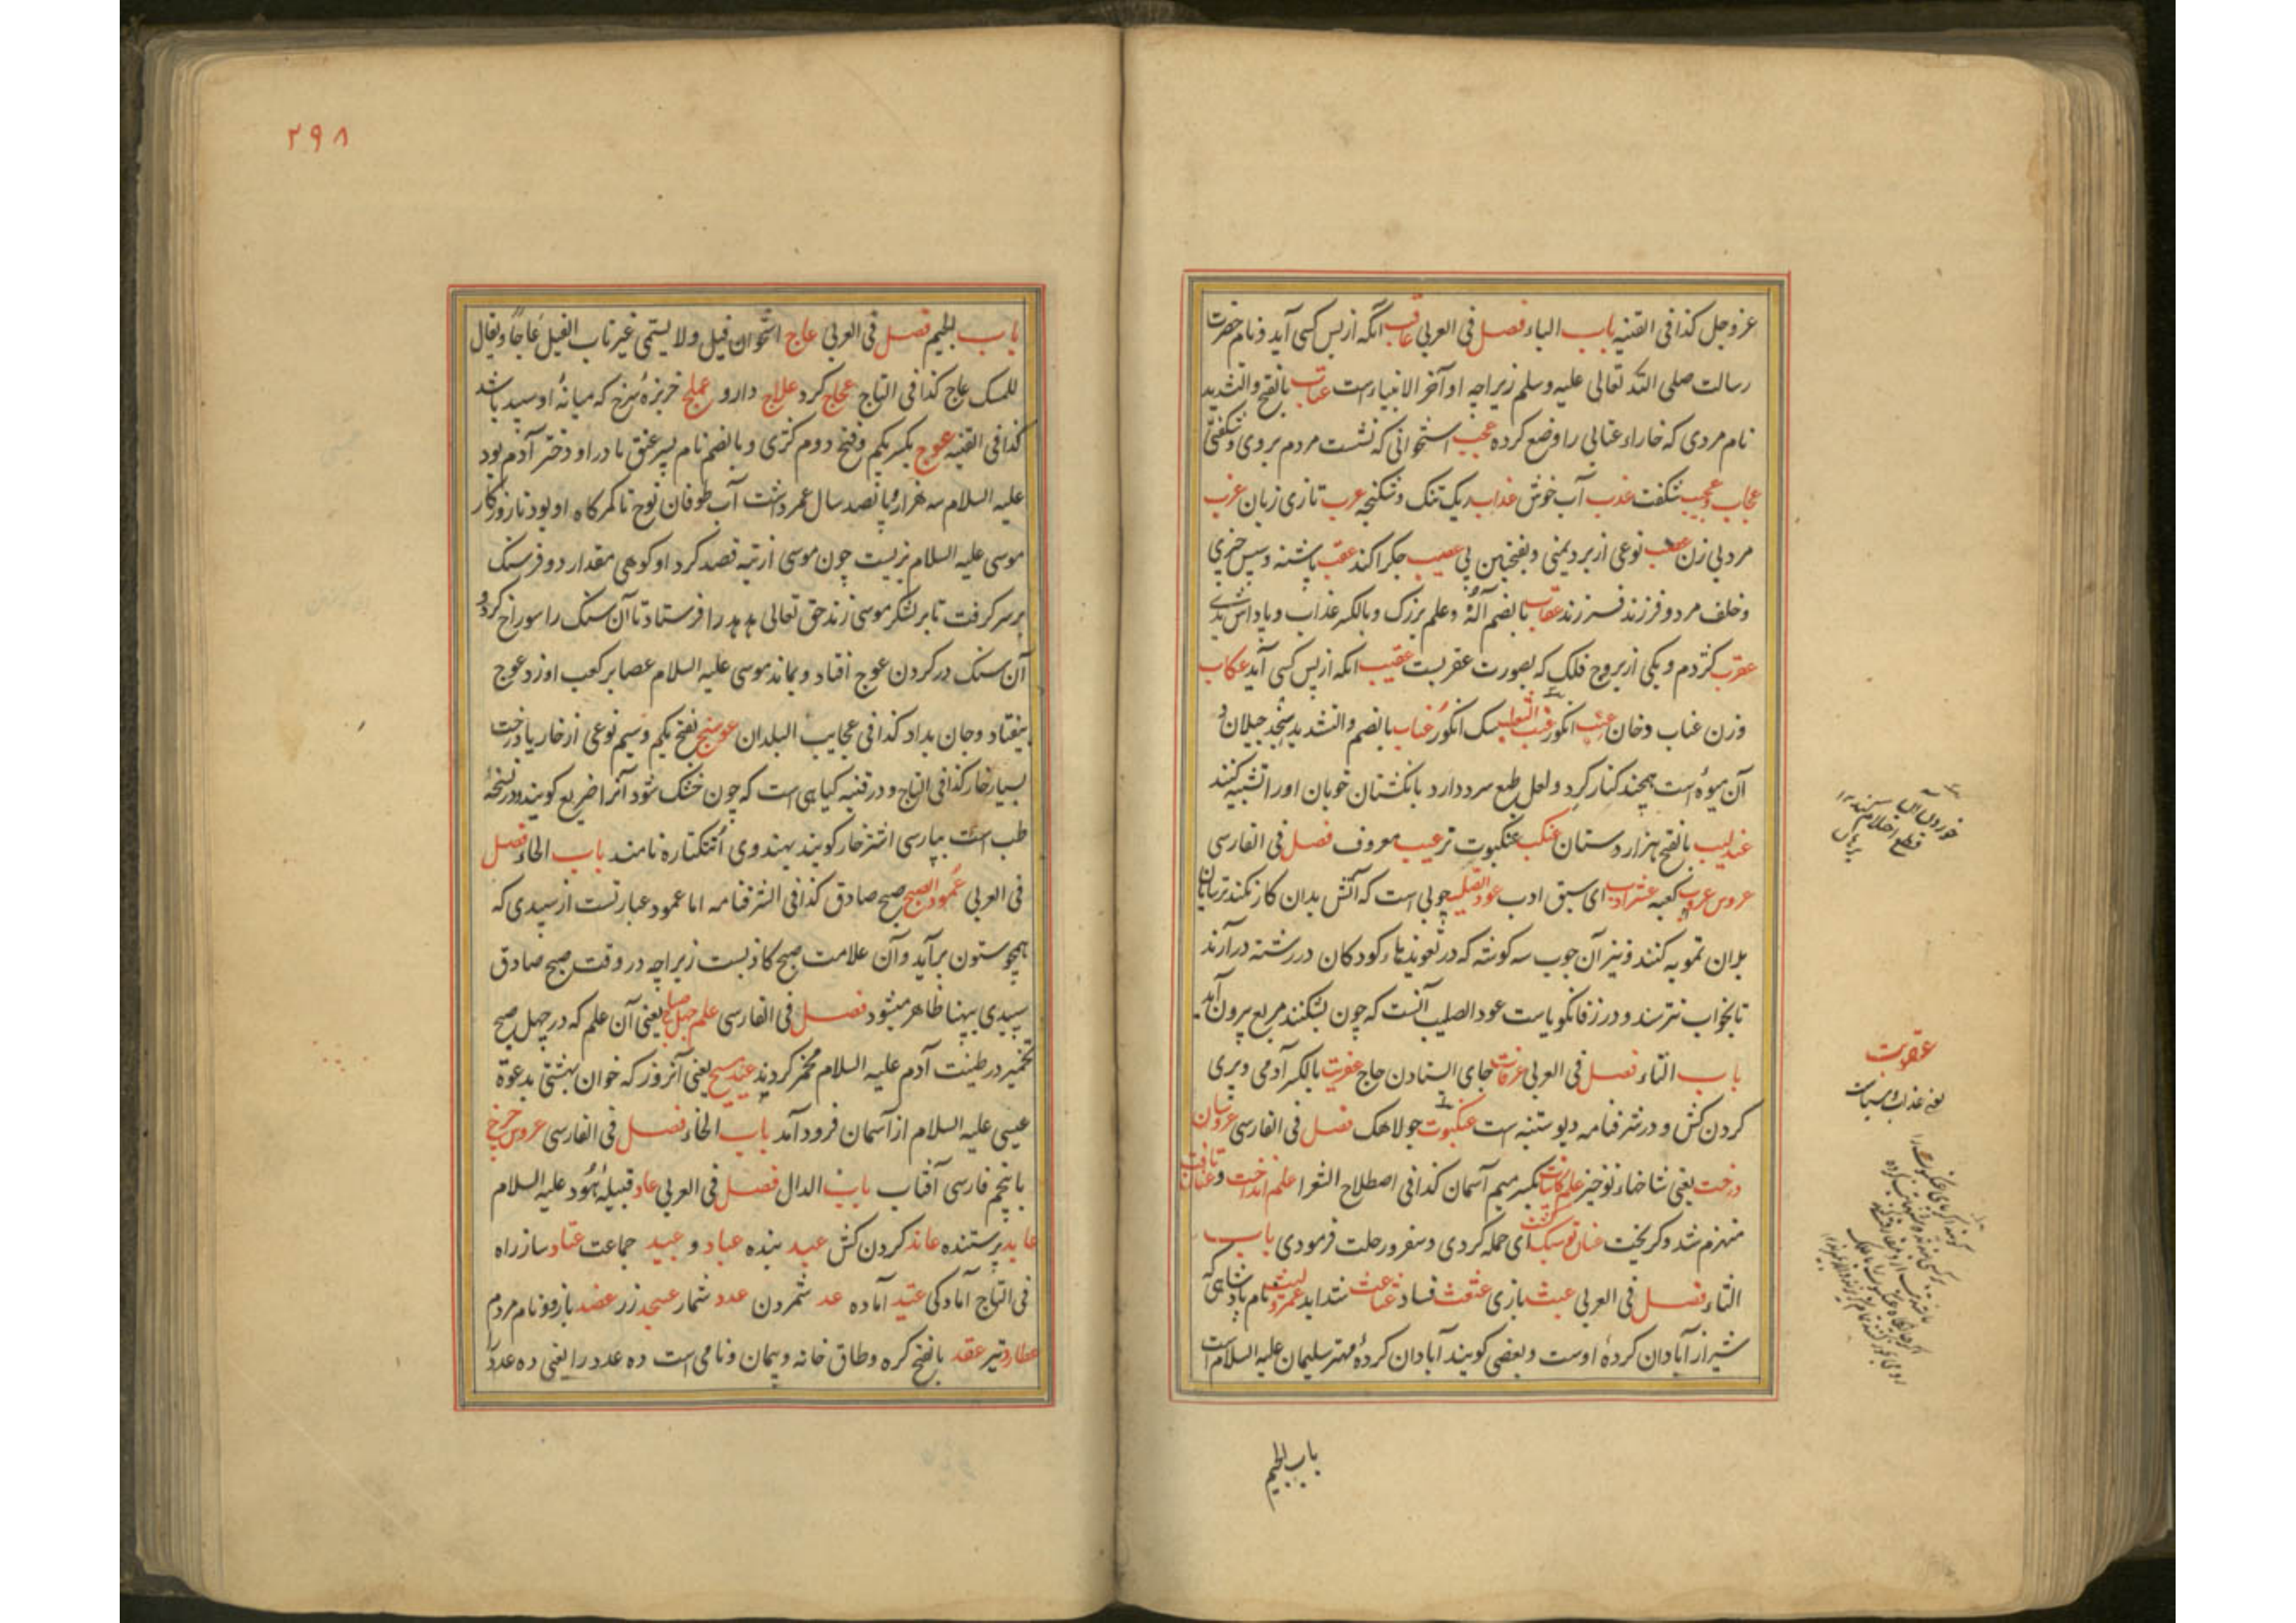 عزوجل کذا فی القنیه باب الباء فصل فی العربی عاقب انکه از پس کسی آید و نام حضرت
رسالت صلی الله تعالی علیه وسلم زیراچه او آخر الانبیاء است عتاب بالفتح والتشدید
نام مردی که خاراء عتابی را وضع کرده عجب استخوانی که نشست مردم بروی و شکفتی
عجاب و عجیب شکفت عذب آب خوش عذاب ریک تنک و شکنجه عرب تازی زبان عزب
مرد بی زن عصب نوعی از برد یمنی و بفتحتین پی عصیب جکر اکند عقب پاشنه و سپس چیزی
و خلف مرد و فرزند فرزند عقاب بالضم آله و علم بزرک و بالکسر عذاب و پاداش بدی
عقرب کژدم و یکی از بروج فلک که بصورت عقربست عقیب انکه از پس کسی آید عکاب
وزن غباب دخان عنب انکور عنب الثعلب سک انکور عناب بالضم والتشدید سنجد جیلان و
آن میوه است همچند کنار کرد و لعل طبع سرد دارد بانکشتان خوبان اورا تشبیه کنند
عندلیب بالفتح هزار دستان عنکب عنکبوت ترعیب معروف فصل فی الفارسی
عروس عرب کعبه عشر ادب ای سبق ادب عود الصلیب چوبی است که آتش بدان کار نکند ترسایان
بدان تمویه کنند و نیز آن چوب سه کوشه که در تعویذهاء کودکان در رشته درآرند
تا بخواب نترسند و در زفانکویاست عود الصلیب آنست که چون بشکنند مربع بیرون آید
باب التاء فصل فی العربی عرفات جای استادن حاج عفریت بالکسر آدمی و پری
کردن کش و در شرفنامه دیو ستنبه است عنکبوت جولاهک فصل فی الفارسی عروسان
درخت یعنی شاخهاء نوخیز علم کاینات بکسر میم آسمان کذا فی اصطلاح الشعرا علم انداخت و عنان تافت
منهزم شد و کریخت عنان توسبک کشت ای حمله کردی و سفر و رحلت فرمودی باب
الثاء فصل فی العربی عبث بازی عثعث فساد عثاعث شداید عمرو لیث نام پادشاهی که
شیراز آبادان کردهٔ اوست و بعضی کویند آبادان کردهٔ مهتر سلیمان علیه السلام است
باب الجیم
عقوبت
یعنی عذاب و سیاست
۲۹۸
باب الجیم فصل فی العربی عاج استخوان فیل ولا یسمی غیر ناب الفیل عاجا و یقال
للمسک عاج کذا فی التاج عجاج کرد علاج دارو عملج خربزهٔ سرخ که میانهٔ او سپید باشد
کذا فی القنیه عوج بکسر یکم و فتح دوم کژی و بالضم نام پسر عنق مادر او دختر آدم بود
علیه السلام سه هزار و پانصد سال عمر داشت آب طوفان نوح تا کمرکاه او بود تا روزکار
موسی علیه السلام بزیست چون موسی از تیه قصد کرد او کوهی مقدار دو فرسنک
بر سر کرفت تا بر لشکر موسی زند حق تعالی هدهد را فرستاد تا آن سنک را سوراخ کرد و
آن سنک در کردن عوج افتاد و بماند موسی علیه السلام عصا بر کعب او زد عوج
بیفتاد و جان بداد کذا فی عجایب البلدان عوسج بفتح یکم و سیم نوعی از خار یا درخت
بسیار خار کذا فی التاج و در قنیه کیاهی است که چون خشک شود آنرا ضریع کویند و در نسخهٔ
طب است بپارسی اشترخار کویند بهندوی اُتنکتاره نامند باب الحاء فصل
فی العربی عمود الصبح صبح صادق کذا فی الشرفنامه اما عمود عبارتست از سپیدی که
همچو ستون برآید و آن علامت صبح کاذبست زیراچه در وقت صبح صادق
سپیدی بپهنا ظاهر میشود فصل فی الفارسی علم چهل صباح یعنی آن علم که در چهل صبح
تخمیر در طینت آدم علیه السلام مخمر کردند عید مسیح یعنی آنروز که خوان بهشتی بدعوة
عیسی علیه السلام از آسمان فرود آمد باب الخاء فصل فی الفارسی عروس چرخ
با جیم فارسی آفتاب باب الدال فصل فی العربی عاد قبیلهٔ هود علیه السلام
عابد پرستنده عاند کردن کش عبد بنده عباد و عبید جماعت عتاد ساز راه
فی التاج آمادکی عتید آماده عد شمردن عدد شمار عسجد زر عضد بازو و نام مردم
عطارد تیر عقد بالفتح کره و طاق خانه و پیمان و نامی است ده عدد را یعنی ده عدد را